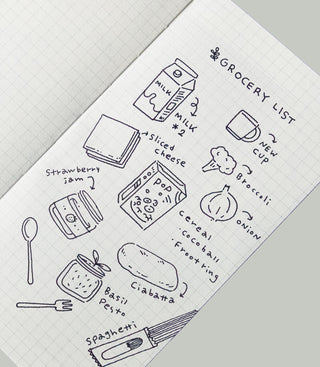 GROCERY LIST
MILK
MILK
*2
NEW
CUP
Sliced
cheese
Broccoli
Strawberry
jam
ONION
cereal
·cocoball
·Frootring
Ciabatta
Basil
Pesto
spaghetti